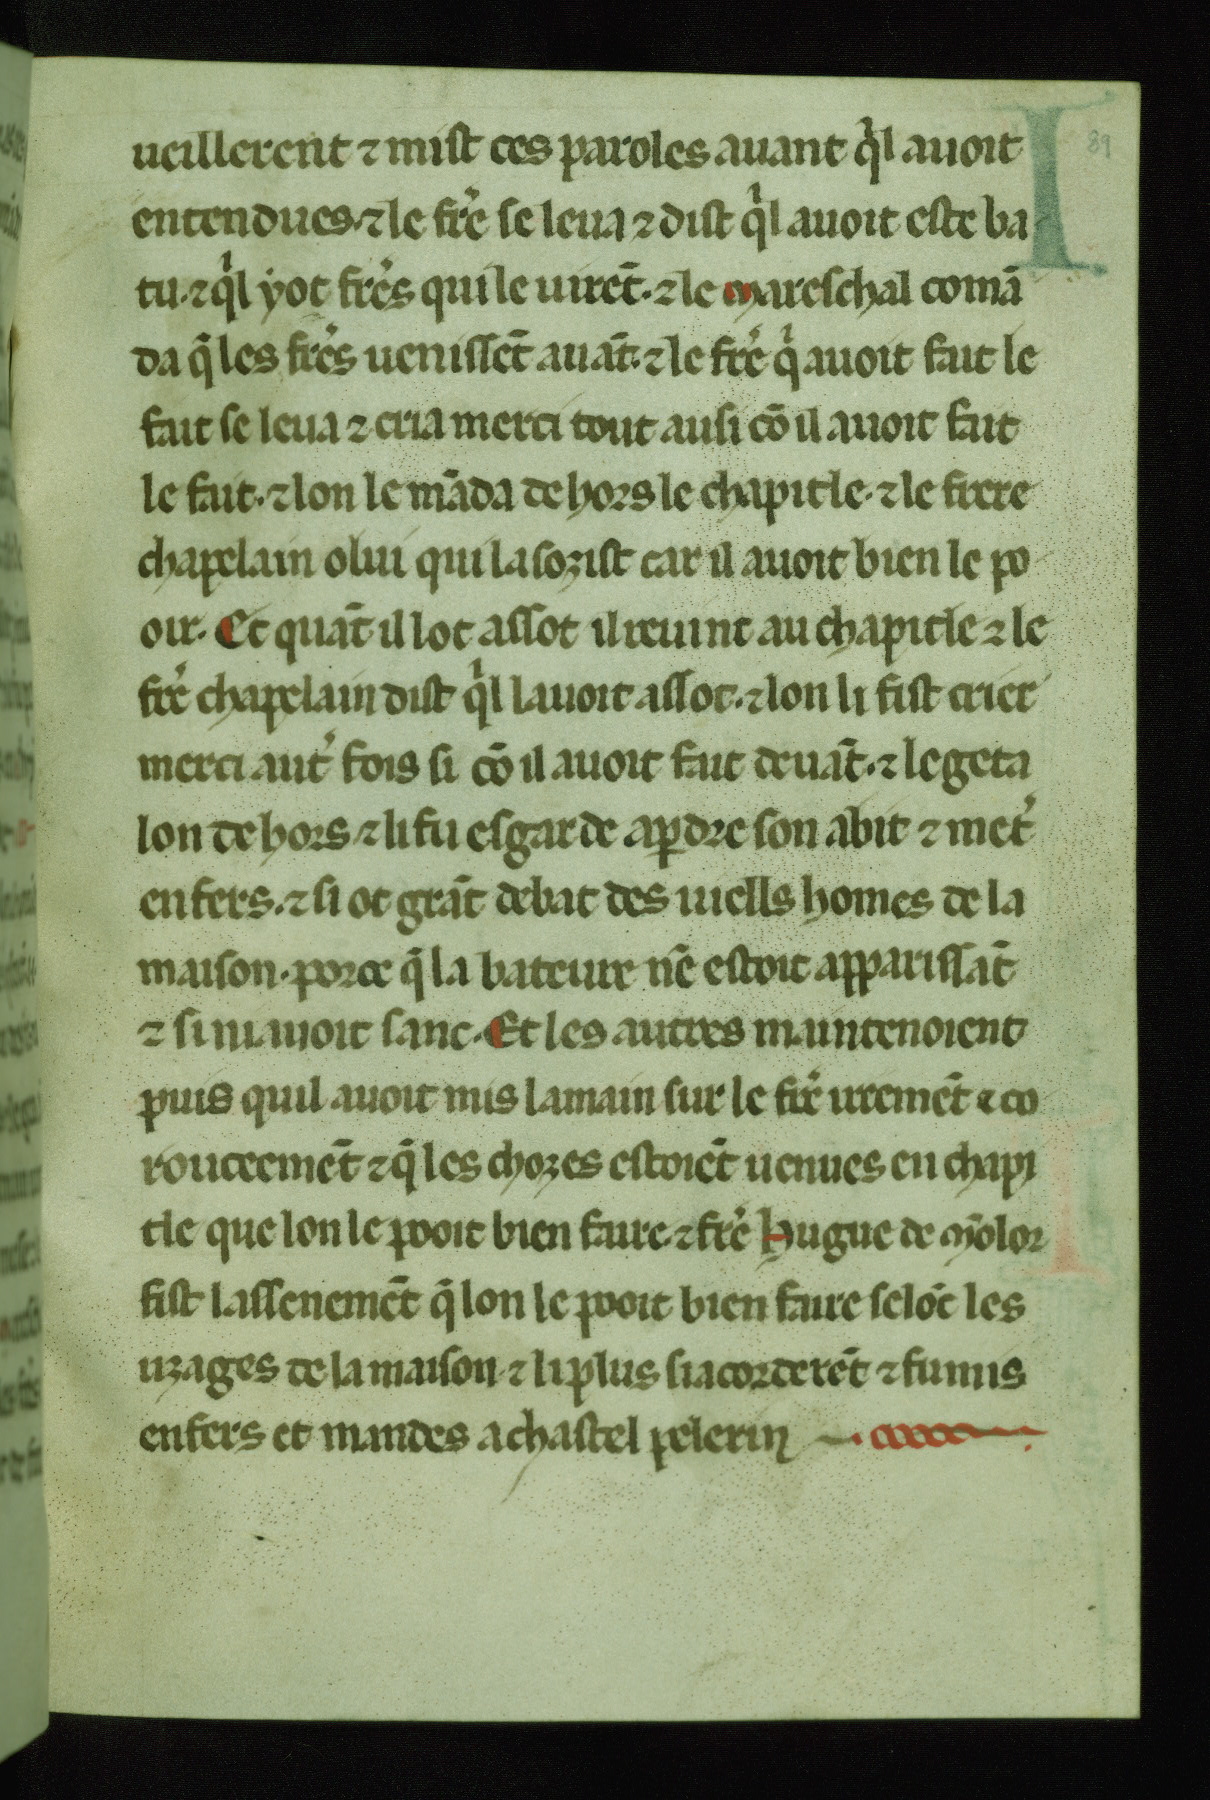 ueillerent ⁊ mist ces paroles auant qͥl auoit
entendues·⁊ le fre᷒ se leua ⁊ dist qͥl auoit este ba
tu·⁊ qͥl yot fre᷒s qui le uiret̄·⁊ le mareschal comā
da q̄ les fre᷒s uenisset̄ auāt·⁊ le fre᷒ qͥ auoit fait le
fait se leua ⁊ cria merci tout ausi cō il auoit fait
le fait·⁊ lon le māda dehors le chapitle·⁊ le frere
chapelain olui qui lasozist car il auoit bien le po
oir· Et quāt il lot assot il reuint au chapitle ⁊ le
fre᷒ chapelain dist qͥl lauoit assot·⁊ lon li fist crier
merci aut᷒ fois si cō il auoit fait deuāt·⁊ le geta
lon dehors ⁊ li fu esgarde a ꝑdre son abit ⁊ met᷒
enfers·⁊ si ot grāt debat des uiells homes de la
maison·porce q̄ la bateure nē estoit apparissāt
⁊ si ni auoit sanc· Et les autres maintenoient
puis quil auoit mis lamain sur le fre᷒ iiremēt ⁊ co
roucemēt ⁊ q̄ les chozes estoiēt uenues en chapi
tle que lon le pooit bien faire·⁊ fre᷒ hugue de mōlor
fist lassenemēt q̄ lon le pooit bien faire selōc les
uzages de la maison·⁊ li plus si acorderēt ⁊ fu mis
enfers et mandes a chastel pelerin
I
89